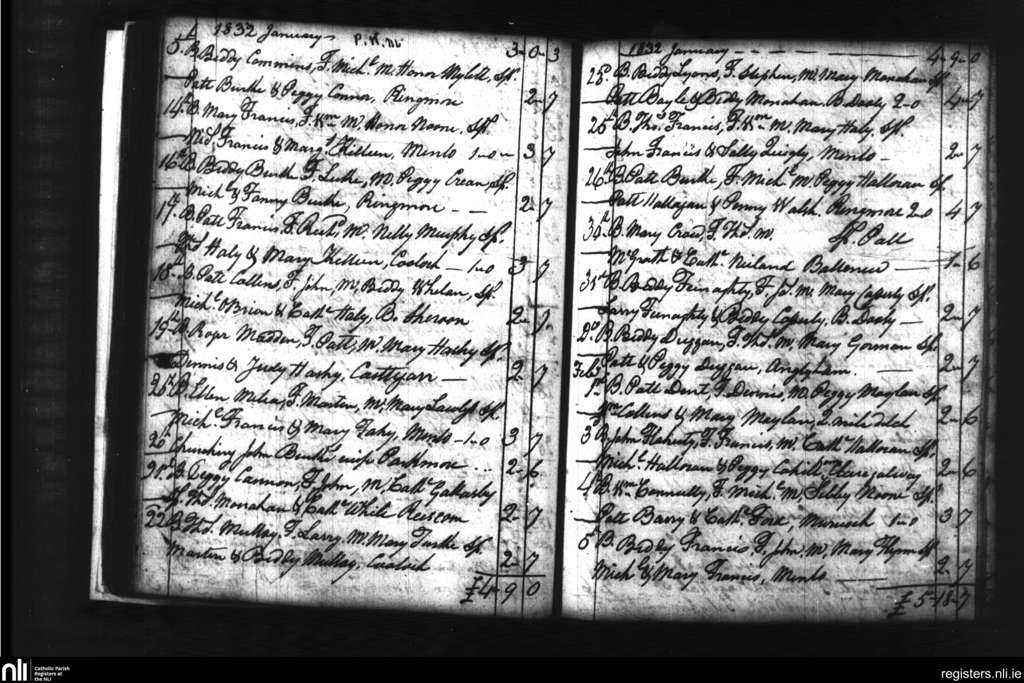 1832 January P.K.M. 3-0-3
5. B. Biddy Commins, F. Mich.l M. Honor Mylett, Sp.
Patt Burke & Peggy Connor, Ringmore 2-7
14th B. Mary Francis, F. Wm M. Honor Noone, Sp.
Mich.l Francis & Marg.t Killeen, Menlo 1-0 3-7
16th B. Biddy Burke F. Luke, M. Peggy Crean, Sp.
Mich.l & Fanny Burke, Ringmore 2-7
17th B. Patt Francis, F. Rich.d M. Nelly Murphy Sp.
Tho.s Haly & Mary Killeen, Coolock 1-0 3-7
18th B. Patt Collins, F. John, M. Biddy Whelan, Sp.
Mich.l O'Brien & Cath.e Haly, B. 2-7
19th B. Roger Madden, F. Patt, M. Mary Hashy Sp.
Dennis & Judy Hashy, Castlegar 2-7
B. Ellen Melea, F. Martin, M. Mary Sp.
Mich.l Francis & Mary Fahy, Menlo 1-0 3-7
20th Churching John Burke's wife Parkmore 2-6
B. Peggy Cannon, F. John, M. Cath.e
Sp. Tho.s Monahan & Cath.e While 2-7
22d B. Tho.s Mullay, F. Larry, M. Mary Sp.
Martin & Biddy Mullay, Coolock 2-7
£4-9-0
1832 January 4-9-0
25th B. Biddy Lyons, F. Stephen, M. Mary Monahan Sp.
Patt Bayle & Bidy Monahan, B. Dooly 2-0 4-7
25th B. Tho.s Francis, F. Wm M. Mary Haly, Sp.
John Francis & Sally Quigly, Menlo 2-7
26th B. Patt Burke, F. Mich.l M. Peggy Halloran Sp.
Patt Hallajan & Penny Walsh, Ringmore 2-0 4-7
30th B. Mary Croad, F. Tho.s M. Sp. Patt
McGrath & Cath.e Neiland 1-6
31st B. Biddy Feenaghty, F. Ja.s M. Mary Caperly Sp.
Larry Feenaghty & Biddy Caperly, B. Dooly 2-7
2d B. Biddy Duggan, F. Tho.s M. Mary Gorman Sp.
Feb.y Patt & Peggy Duggan, Anglyham 2-7
1st B. Patt Dent, F. Dennis, M. Peggy Maylan Sp.
Wm Collins & Mary Maylan, 2 mile ditch 2-6
3 B. John Flaherty, F. Francis, M. Cath.e Halloran Sp.
Mich.l Halloran & Peggy Cahill, Claregalway 2-6
4th B. Wm Connelly, F. Mich.l M. Sibby Noone Sp.
Patt Barry & Cath.e Forde, 1-0 3-7
5 B. Biddy Francis, F. John, M. Mary Flynn Sp.
Mich.l & Mary Francis, Menlo 2-7
£5-18-7
nli
Catholic Parish
Registers at
the NLI
registers.nli.ie